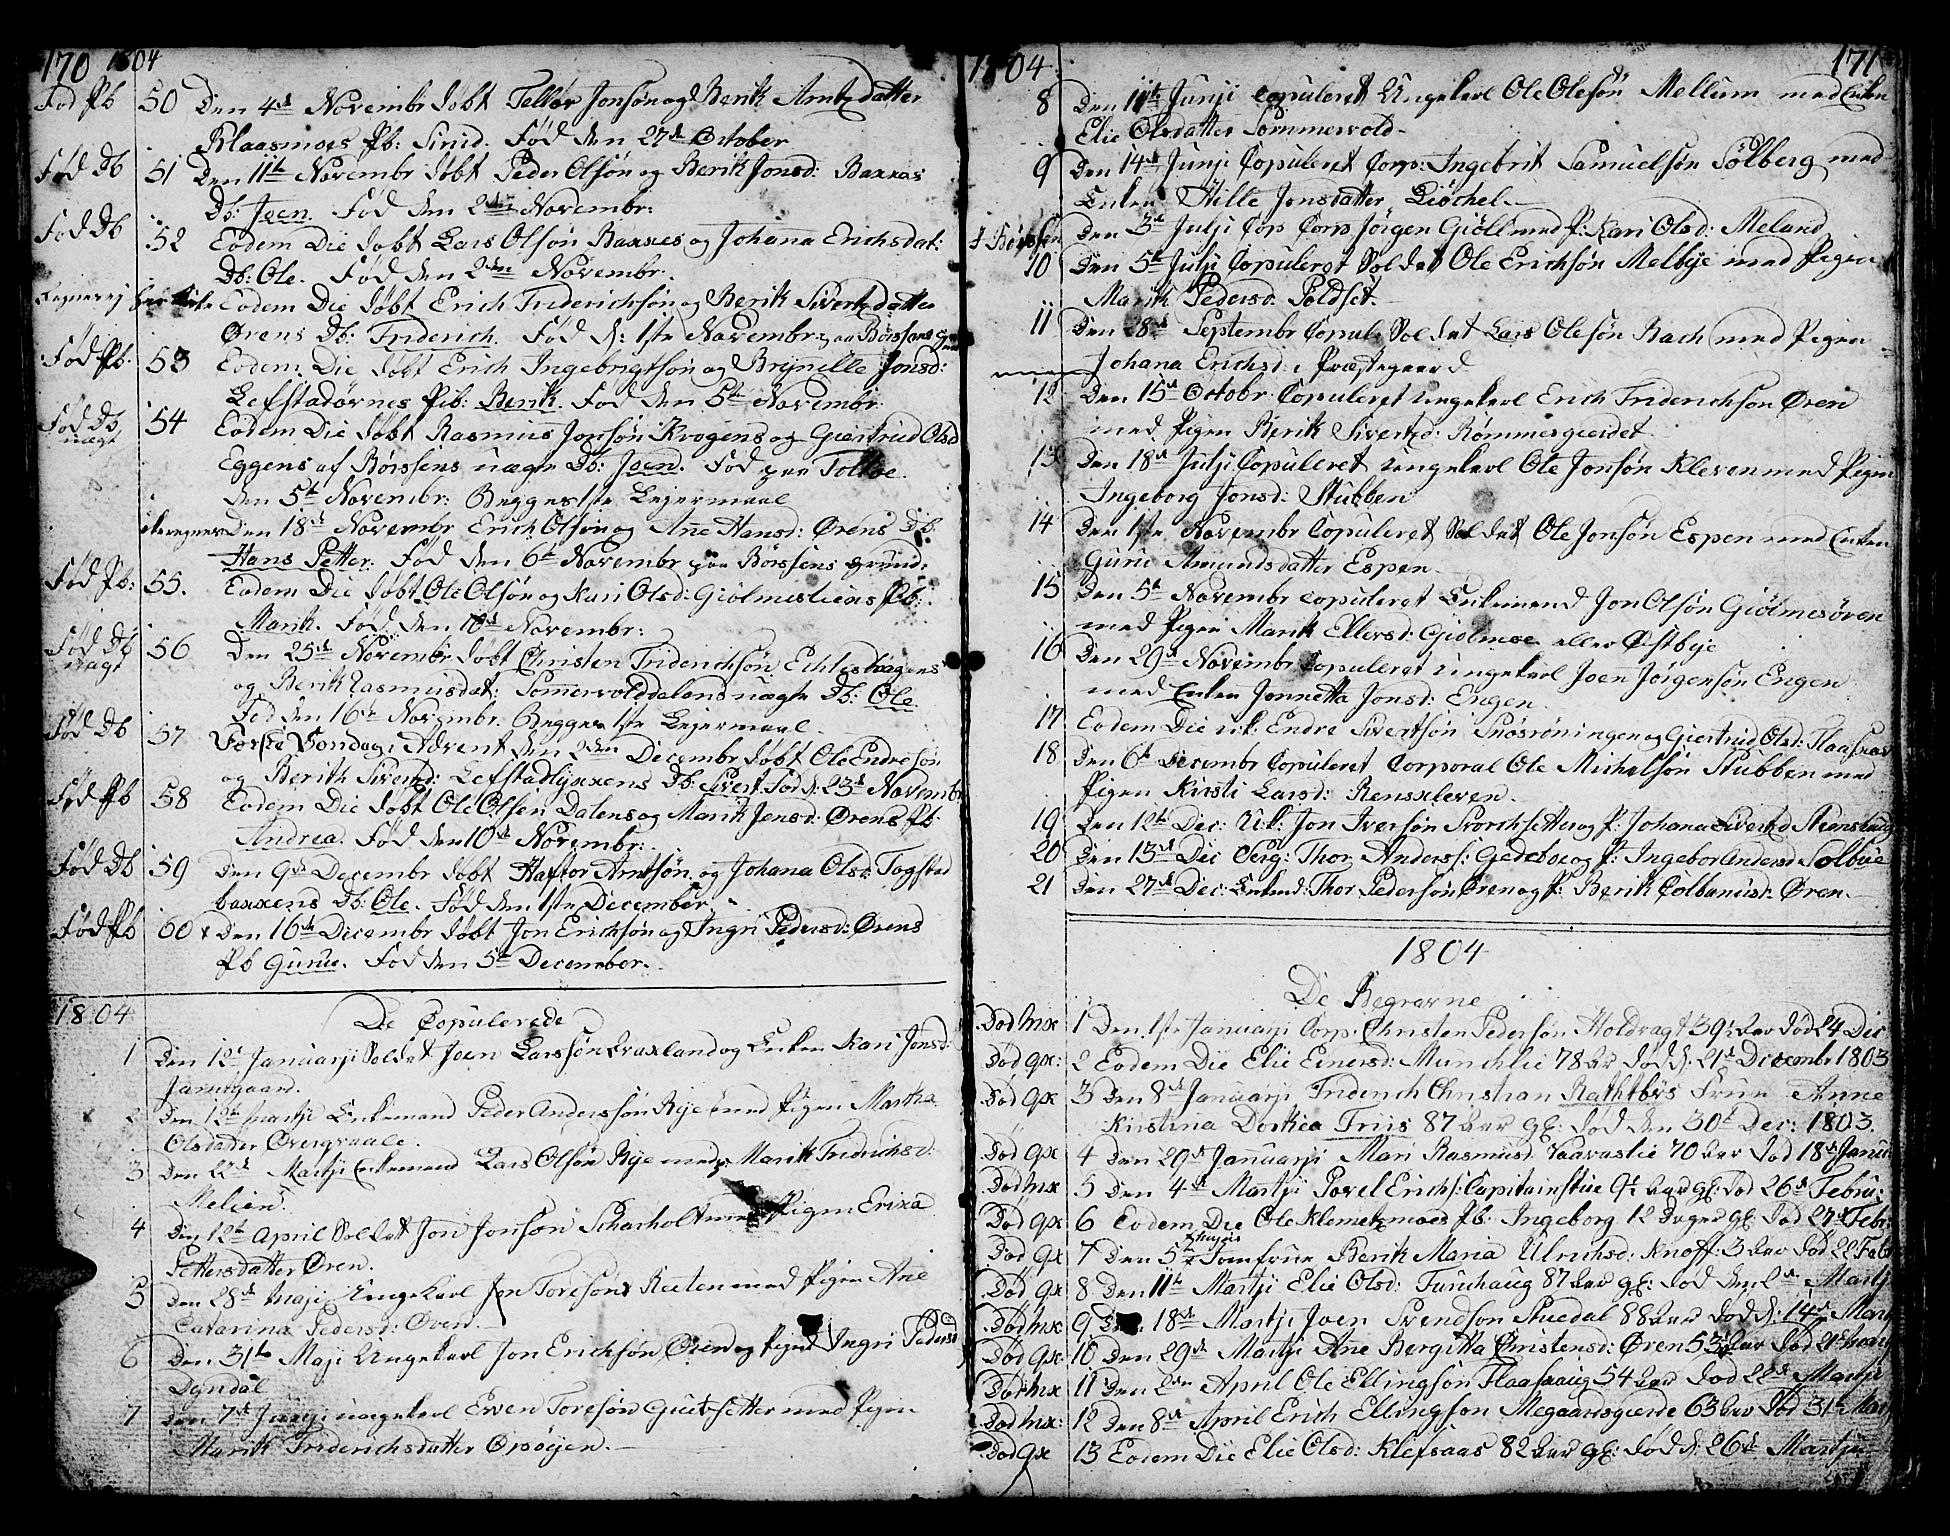 170 1804
Fød Pb 50 Den 4de Novembr døbt Tellør Jonsøn og Berit Arntzdatter
Klaasmoes Pb: Sirid. Fød den 27de October
Fød Db 51 Den 11te Novembr døbt Peder Olsøn og Berit Jonsd: Bakkas
Db: Joen. Fød den 2den Novembr:
Fød Db 52 Eodem Die døbt Lars Olsøn Bakkes og Johana Erichsdat:
Db: Ole. Fød den 2den Novembr.
Eodem Die døbt Erich Friderichsøn og Berit Sivertzdatter
Ørens Db: Friderich. Fød d: 1ste Novembr paa Børssens
Fød Pb. 53 Eodem Die døbt Erich Ingebrigtsøn og Brynille Jonsd:
Lefstadørnes Pib: Berit. Fød den 5te Novembr
Fød Db uægt 54 Eodem Die døbt Rasmus Jonsøn Krogens og Giertrud Olsd
Eggens af Børssens uægte Db: Joen. Fød paa
Den 5te Novembr: Begges 1ste Lejermaal
Den 18de Novembr Erich Olsøn og Ane Hansd: Ørens Db:
Hans Petter. Fød den 6te Novembr paa Børssens grund.
Fød Pb: 55. Eodem Die døbt Ole Olsøn og Kari Olsd: Giølmesliens Pb:
Marit. Fød den 10de Novembr:
Fød Db uægt 56 Den 25de Novembr døbt Christen Friderichsøn
og Berit Rasmusdat: Sommervolddalens uægte Db: Ole
Fød den 16de Novembr. Begges 1ste Lejermaal.
Fød Db 57 Første Søndag i Advent den 2den Decembr døbt Ole Endresøn
og Berith Sivertzd: Lefstadlykkens Db: Sivert. Fød d: 23de Novembr
Fød Pb 58 Eodem Die døbt Ole Olsen Dalens og Marit Jensd: Ørens Pb:
Andrea. Fød den 10de Novembr:
Fød Db 59 Den 9de Decembr døbt Haftor Arntsøn og Johana Olsd: Togstad
bakkens Db: Ole. Fød den 1ste December
Fød Pb 60 Den 16de Decembr døbt Jon Erichsøn og Ingri Pedersd: Ørens
Pb Gurue. Fød den 5te December.
1804 De Copulerede
1 Den 12te Januarji Soldat Joen Larssøn og Enken Kari Jonsd:
2 Den 12te Martji Enkemand Peder Anderssøn Rye med Pigen Martha
Olsdatter
3 Den 22de Martji Enkemand Lars Olsøn Rye med p: Marit Fridrichsd:
Melien.
4 Den 12te April Soldat Jon Jonsøn Scharholt med Pigen Erika
Pettersdatter Øren.
5 Den 28de Maji Ungekarl Jon Toresøn Reeten med Pigen Ane
Catarina Pedersd: Øren.
6 Den 31te Maji Ungekarl Jon Erichsøn Øren og Pigen Ingri Pedersd
Dyndal
7 Den 7de Junji ungekarl Even Toresøn med Pigen
Marit Friderichsdatter
1804 171
8 Den 11te Junji Copuleret Ungekarl Ole Olesøn Mellum med Enken
Elie Olsdatter Sommervold.
9 Den 14de Junji Copuleret Corp: Ingebrit Samuelsøn Sølberg med
Enken Hille Jonsdatter
i Børssen Den 3de Julji Cop Corp Jørgen Giøll med P: Kari Olsd: Meland
10 Den 5te Julji Copuleret Soldat Ole Erichsøn Melbye med Pigen
Marit Pedersd: Soldset.
11 Den 28de Septembr Copul: Soldat Lars Olesøn Bach med Pigen
Johana Erichsd: i Præstegaard
12 Den 15de Octobr Copuleret ungekarl Erich Friderichsøn Øren
med Pigen Berit Sivertzd: Rømmesgierdet
13 Den 18de Julji Copuleret ungekarl Ole Jonsøn Kleven med Pigen
Ingeborg Jonsd: Stubben
14 Den 1ste Novembr Copuleret Soldat Ole Jonsøn Espen med Enken
Gurue Amundsdatter Espen
15 Den 5te Novembr Copuleret Enkemand Jon Olsøn Giølmesøren
med Pigen Marit Ellevsd: Giølmoe eller Østbye
16 Den 29de Novembr Copuleret ungekarl Joen Jørgensøn Engen
med Enken Jonnetta Jonsd: Engen.
17 Eodem Die u:k: Endre Sivertsøn Snøsrøningen og Giertrud Olsd:
18 Den 6te Decembr Copuleret Corporal Ole Michelsøn Stubben med
Pigen Kirsti Larsd: Renskleven.
19 Den 12te Dec: U:k: Jon Iversøn og P: Johana Sivertzd
20 Den 13de Dec Serg: Thor Anderss: Gedeboe og P: Ingebor Andersd Solbue
21 Den 27de Dec: Enkemd: Thor Pedersøn Øren og P: Berit Colbanusd: Øren.
1804
De Begravne
Død 1 Den 1ste Januarji Corp. Christen Pedersøn Holdragt 39½ aar død 24 Dec
Død qx: 2 Eodem Die Elie Einersd: Munchlie 78 aar død d: 21de Decembr 1803
Død qx 3 Den 8de Januarji Friderich Christian Rathtbys Frue Anne
Kirstina Dorthea Friis 87 aar gl: død den 30te Dec: 1803.
Død qx 4 Den 29de Januarji Mari Rasmusd 70 aar død 18de Janu:
Død mx 5 Den 4de Martji Povel Erichs: Capitainstue 9½ aar gl: død 26de Febru:
Død qx 6 Eodem Die Ole Klemetzmoes Pb: Ingeborg 12 dager gl: død 27de Febr
Død qx 7 Den 5te Jomfrue Berit Maria Ulrichsd: Knoff: 3 aar død 22 Febr
Død qx 8 Den 11te Martji Elie Olsd: Furuhaug 87 aar gl: død den 2den Martji
Død mx 9 Den 18de Martji Joen Svendsøn Stuedal 88 aar død d: 14de Martji
Død qx 10 Den 29de Martji Ane Bergitta Christensd: Øren 53½ aar død 21de Martji
Død mx 11 Den 2den April Ole Ellingsøn Flaaskaug 54 aar død 28de Martji
Død mx: 12 Den 8de April Erich Ellingsøn Megaardsgierde 63 aar død 31te Martji
Død qx 13 Eodem Die Elie Olsd: Klefsaas 82 aar gl: død d: 26de Martji